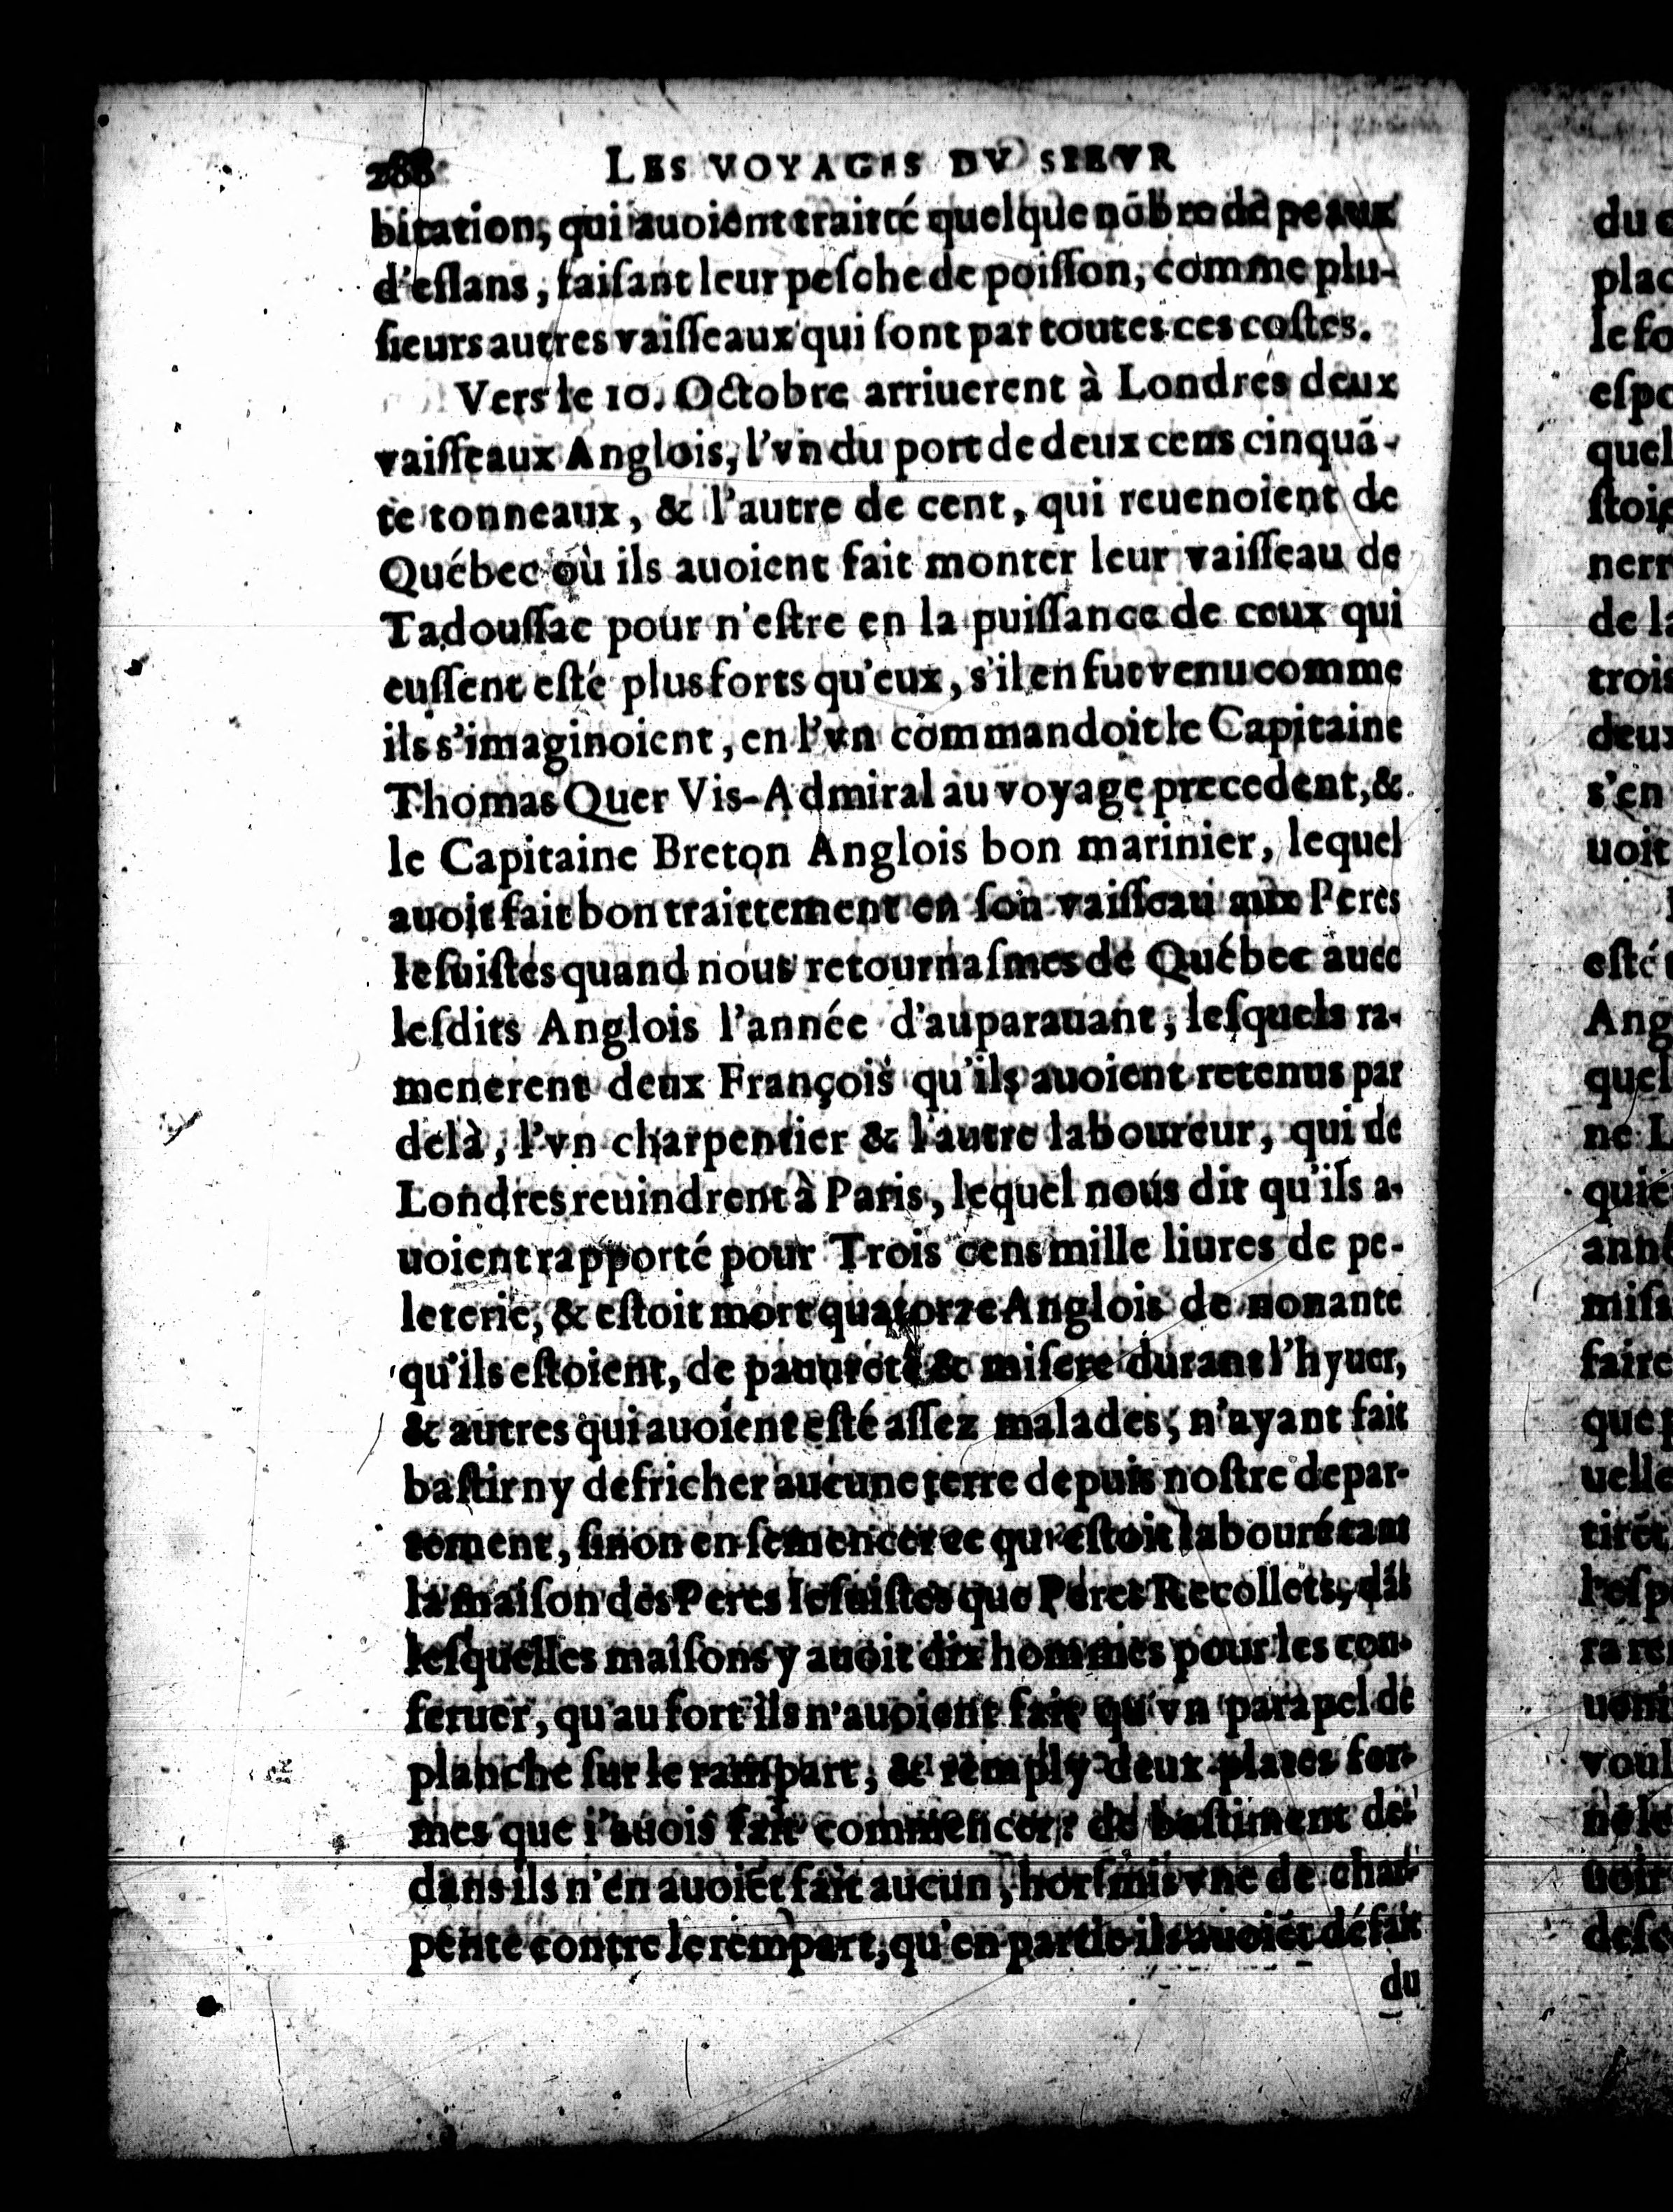 288 LES VOYAGES DV SIEVR
bitation, qui auoient traitté quelque nõbre de peaux
d'eſlans, faiſant leur peſche de poiſſon, comme plu-
ſieurs autres vaiſſeaux qui ſont par toutes ces coſtes.
Vers le 10. Octobre arriuerent à Londres deux
vaiſſeaux Anglois, l'vn du port de deux cens cinquã-
te tonneaux, & l'autre de cent, qui reuenoient de
Québec où ils auoient fait monter leur vaiſſeau de
Tadouſſac pour n'eſtre en la puiſſance de ceux qui
euſſent eſté plus forts qu'eux, s'il en fut venu comme
ils s'imaginoient, en l'vn commandoit le Capitaine
Thomas Quer Vis-Admiral au voyage precedent, &
le Capitaine Breton Anglois bon marinier, lequel
auoit fait bon traittement en ſon vaiſſeau aux Peres
Ieſuiſtes quand nous retournaſmes de Québec auec
leſdits Anglois l'année d'auparauant, leſquels ra-
menerent deux François qu'ils auoient retenus par
delà, l'vn charpentier & l'autre laboureur, qui de
Londres reuindrent à Paris, lequel nous dit qu'ils a-
uoient rapporté pour Trois cens mille liures de pe-
leterie, & eſtoit mort quatorze Anglois de nonante
qu'ils eſtoient, de pauureté & miſere durant l'hyuer,
& autres qui auoient eſté aſſez malades, n'ayant fait
baſtir ny defricher aucune terre depuis noſtre depar-
tement, ſinon enſemencer ce qui eſtoit labouré tant
la maiſon des Peres Ieſuiſtes que Peres Recollets, dãs
leſquelles maiſons y auoit dix hommes pour les con-
ſeruer, qu'au fort ils n'auoient fait qu'vn parapel de
planche ſur le rampart, & remply deux plates for-
mes que i'auois fait commencer: de baſtiment de-
dans ils n'en auoiẽt fait aucun, horſmis vne de char-
pente contre le rempart, qu'en partie ils auoiẽt défait
du